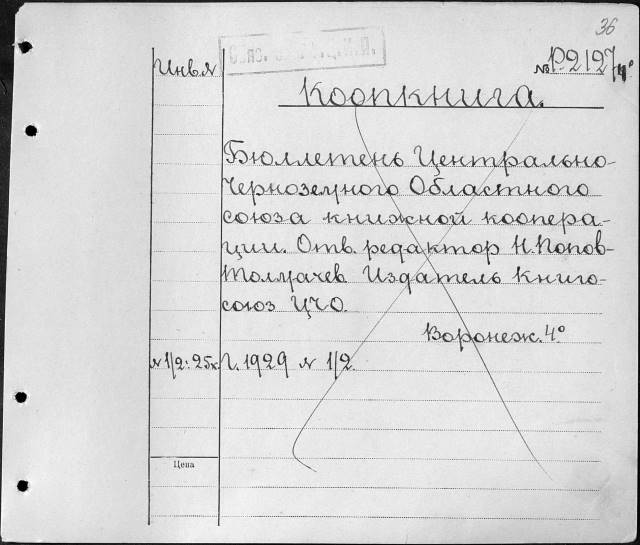 36
Инв. №
№ P2127/4°
Коопкнига.
Бюллетень Центрально-
Черноземного Областного
союза книжной коопера-
ции. Отв. редактор Н. Попов-
Толмачев Издатель Книго-
союз ЦЧО.
Воронеж. 4°
№ 1/2: 25к. Г. 1929 № 1/2.
Цена